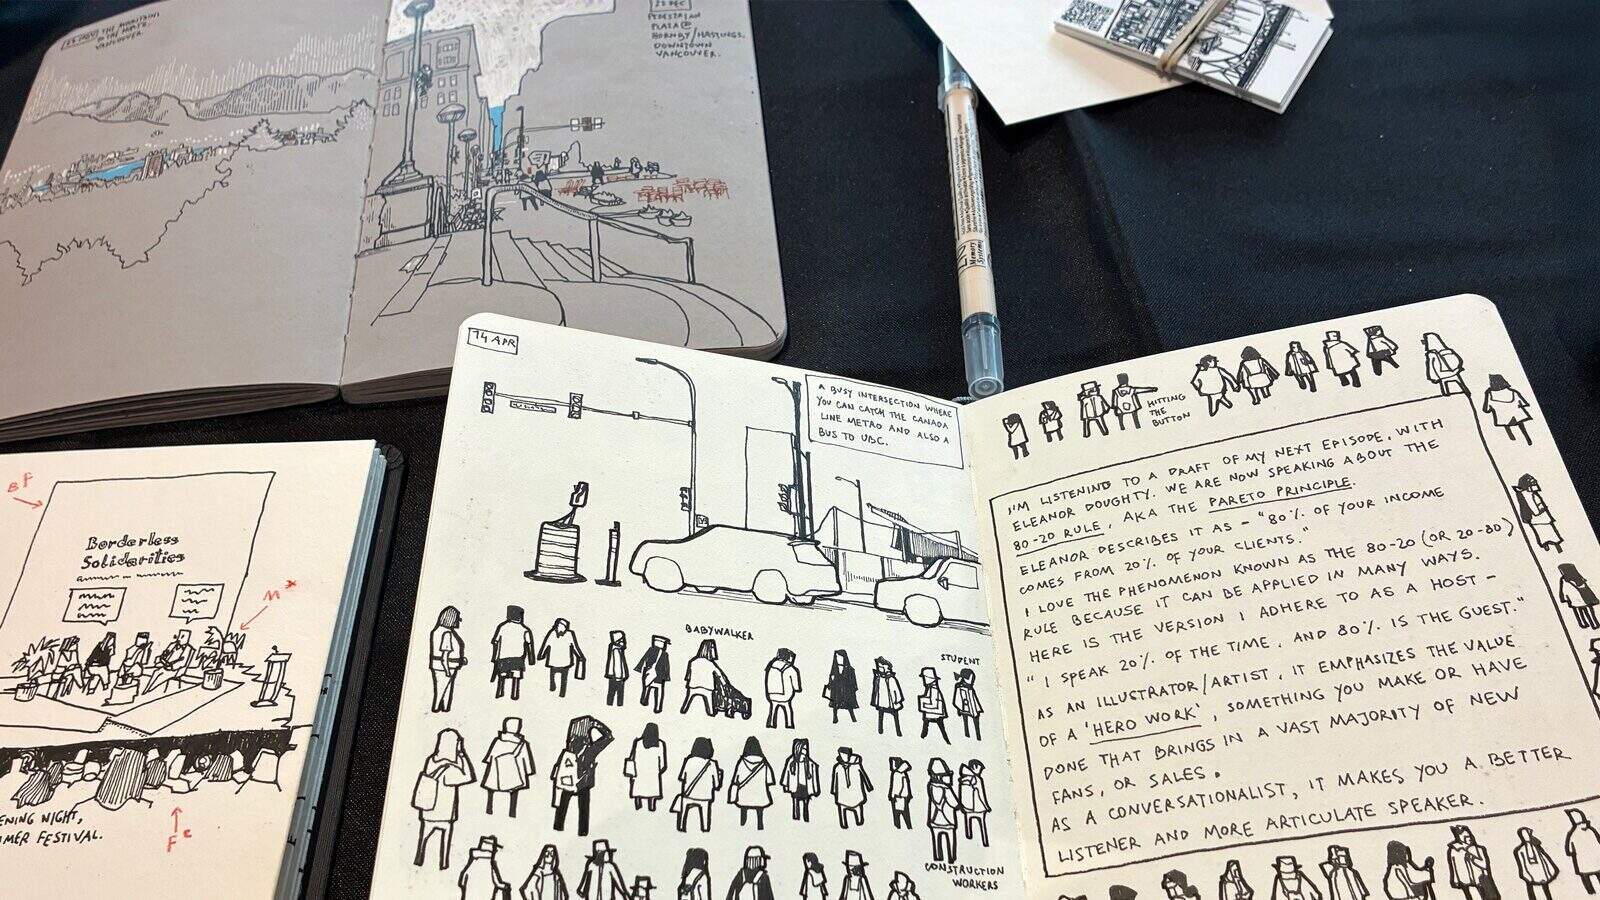 23 NOV THE MOUNTAINS
TO THE NORTH.
VANCOUVER.
22 DEC
PEDESTRIAN
PLAZA @
HORNBY/HASTINGS.
DOWNTOWN
VANCOUVER.
Memory
System
BF
Borderless
Solidarities
M*
ENING NIGHT,
MER FESTIVAL.
14 APR
A BUSY INTERSECTION WHERE
YOU CAN CATCH THE CANADA
LINE METRO AND ALSO A
BUS TO UBC.
BABYWALKER
STUDENT
CONSTRUCTION
WORKERS
HITTING
THE
BUTTON
I'M LISTENING TO A DRAFT OF MY NEXT EPISODE, WITH
ELEANOR DOUGHTY. WE ARE NOW SPEAKING ABOUT THE
80-20 RULE, AKA THE PARETO PRINCIPLE.
ELEANOR DESCRIBES IT AS - "80% OF YOUR INCOME
COMES FROM 20% OF YOUR CLIENTS."
I LOVE THE PHENOMENON KNOWN AS THE 80-20 (OR 20-80)
RULE BECAUSE IT CAN BE APPLIED IN MANY WAYS.
HERE IS THE VERSION I ADHERE TO AS A HOST -
"I SPEAK 20% OF THE TIME, AND 80% IS THE GUEST."
AS AN ILLUSTRATOR/ARTIST, IT EMPHASIZES THE VALUE
OF A 'HERO WORK', SOMETHING YOU MAKE OR HAVE
DONE THAT BRINGS IN A VAST MAJORITY OF NEW
FANS, OR SALES.
AS A CONVERSATIONALIST, IT MAKES YOU A BETTER
LISTENER AND MORE ARTICULATE SPEAKER.